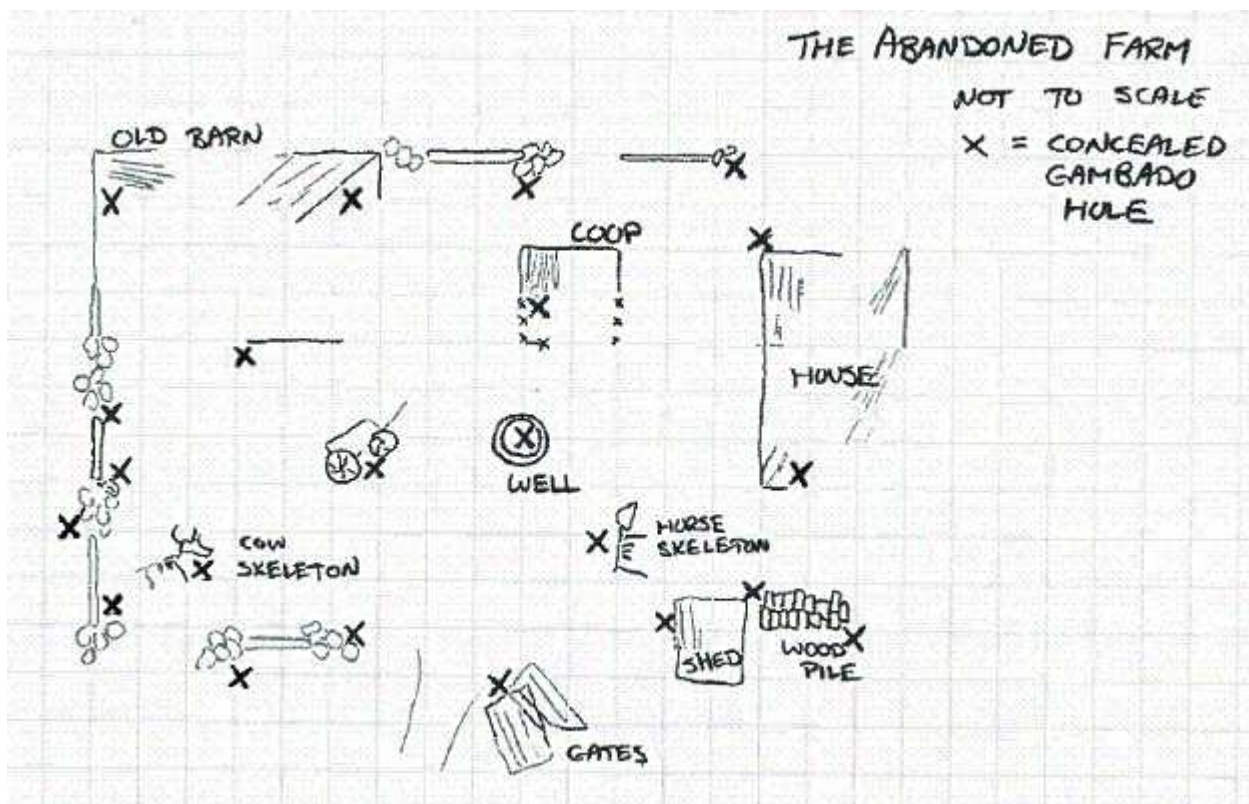 THE ABANDONED FARM
NOT TO SCALE
X = CONCEALED
GAMBADO
HOLE
OLD BARN
COOP
HOUSE
WELL
HORSE
SKELETON
COW
SKELETON
SHED
WOOD
PILE
GATES